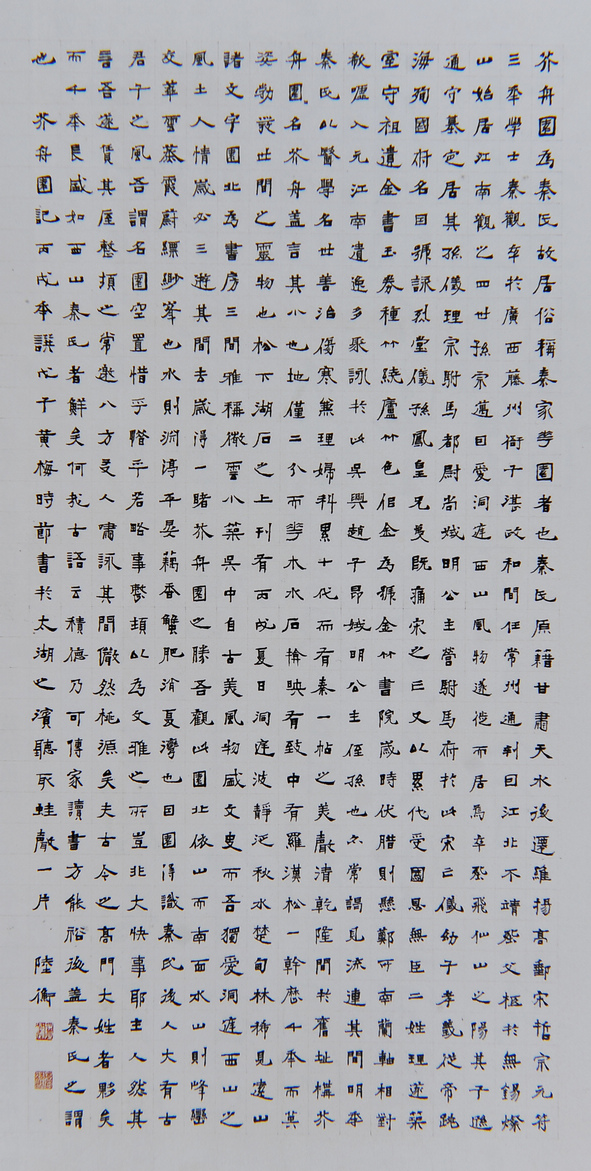 芥舟園為秦氏故居俗稱秦家花園者也秦氏原籍甘肅天水後遷維揚高郵宋哲宗元符
三年學士秦觀卒於廣西藤州衙子湛政和間任常州通判曰江北不靖遷父柩於無錫燦
山始居江南觀之四世孫宗邁曰愛洞庭西山風物遂徙而居焉卒葬飛仙山之陽其子遜
通守墓定居其孫儀理宗駙馬都尉尚城明公主營駙馬府於此宋亡儀幼子孝義從帝跳
海殉國府名曰號詠烈堂儀孫鳳皇兄曼既痛宋之亡又以累代受國恩無臣二姓理遂築
室守祖遺金書玉券種竹繞廬竹色侶金為號金竹書院歲時伏腊則懸鄭所南蘭軸相對
欷噓入元江南遺逸多聚詠於此吳興趙子昂城明公主侄孫也亦常謁見流連其間明季
秦氏以醫學名世善治傷寒兼理婦科累十代而有秦一帖之美聲清乾隆間於舊址構芥
舟園名芥舟蓋言其小也地僅二分而花木水石掩映有致中有羅漢松一幹歷千年而其
姿勃發世間之靈物也松下湖石之上刊有丙戌夏日洞庭波靜泛秋水楚甸林稀見遠山
諸文字園北為書房三間雅稱微雲小築吳中自古美風物盛文史而吾獨愛洞庭西山之
風土人情歲必三遊其間去歲得一睹芥舟園之勝吾觀此園北依山而南面水山則峰巒
交翠雲蒸霞蔚縹緲峯也水則淵渟平晏藕香蟹肥消夏灣也因園得識秦氏後人大有古
君子之風吾謂名園空置惜乎吝乎若略事整頓以為文雅之所豈非大快事耶主人然其
言吾遂賃其屋整頓之常邀八方友人嘯詠其間儼然桃源矣夫古今之高門大姓者夥矣
而千年長盛如西山秦氏者鮮矣何哉古語云積德乃可傳家讀書方能裕後蓋秦氏之謂
也 芥舟園記丙戌年譔戊子黃梅時節書於太湖之濱聽取蛙聲一片 陸衡